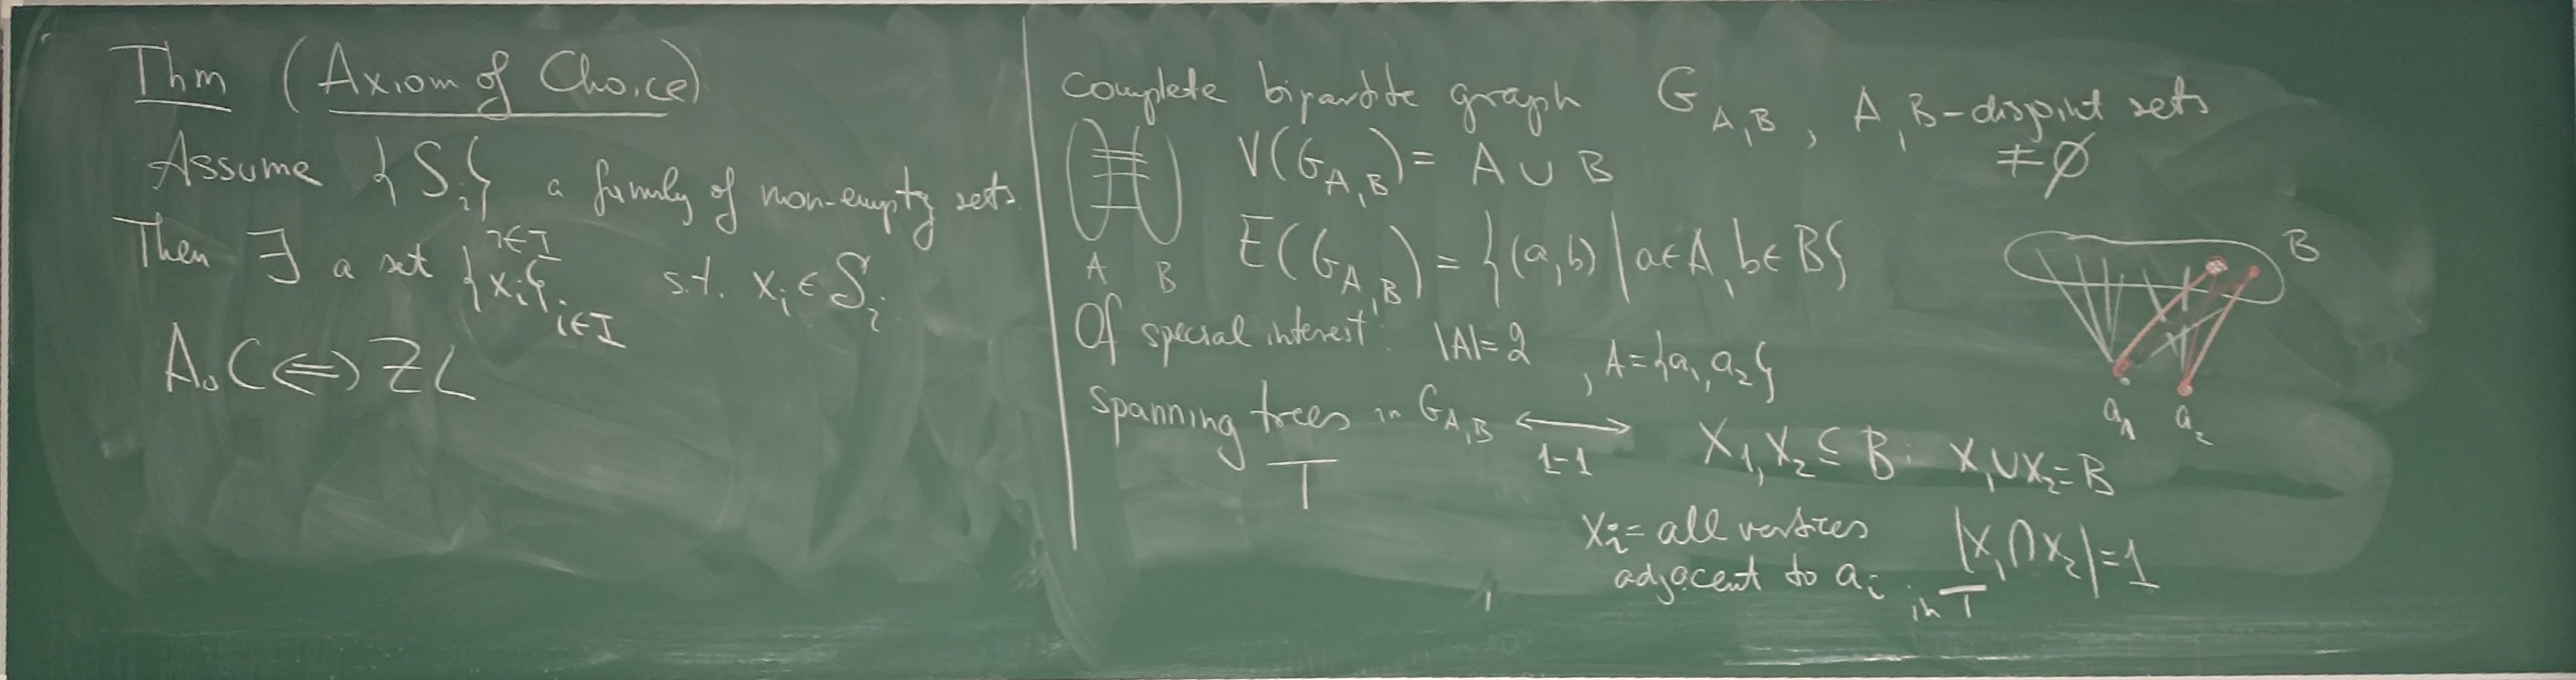 Thm (Axiom of Choice)
Assume {S_i}_{i∈I} a family of non-empty sets.
Then ∃ a set {x_i}_{i∈I} s.t. x_i ∈ S_i
A.C ⇔ ZL
complete bipartite graph G_{A,B}, A,B-disjoint sets
≠ ∅
V(G_{A,B}) = A ∪ B
E(G_{A,B}) = {(a,b) | a∈A, b∈B}
A B
B
Of special interest: |A|=2, A={a_1, a_2}
a_1 a_2
Spanning trees in G_{A,B} ⟷ X_1, X_2 ⊆ B: X_1 ∪ X_2 = B
T 1-1
X_i = all vertices |X_1 ∩ X_2| = 1
adjacent to a_i in T